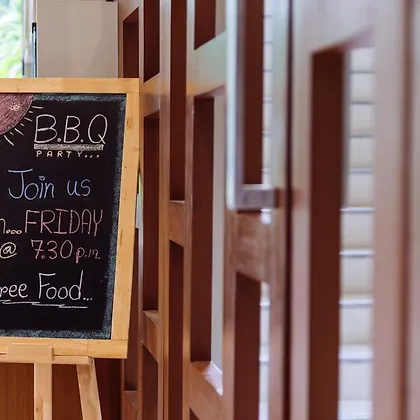 B.B.Q
PARTY...
Join us
...FRIDAY
@ 7.30 p.m.
ree Food...